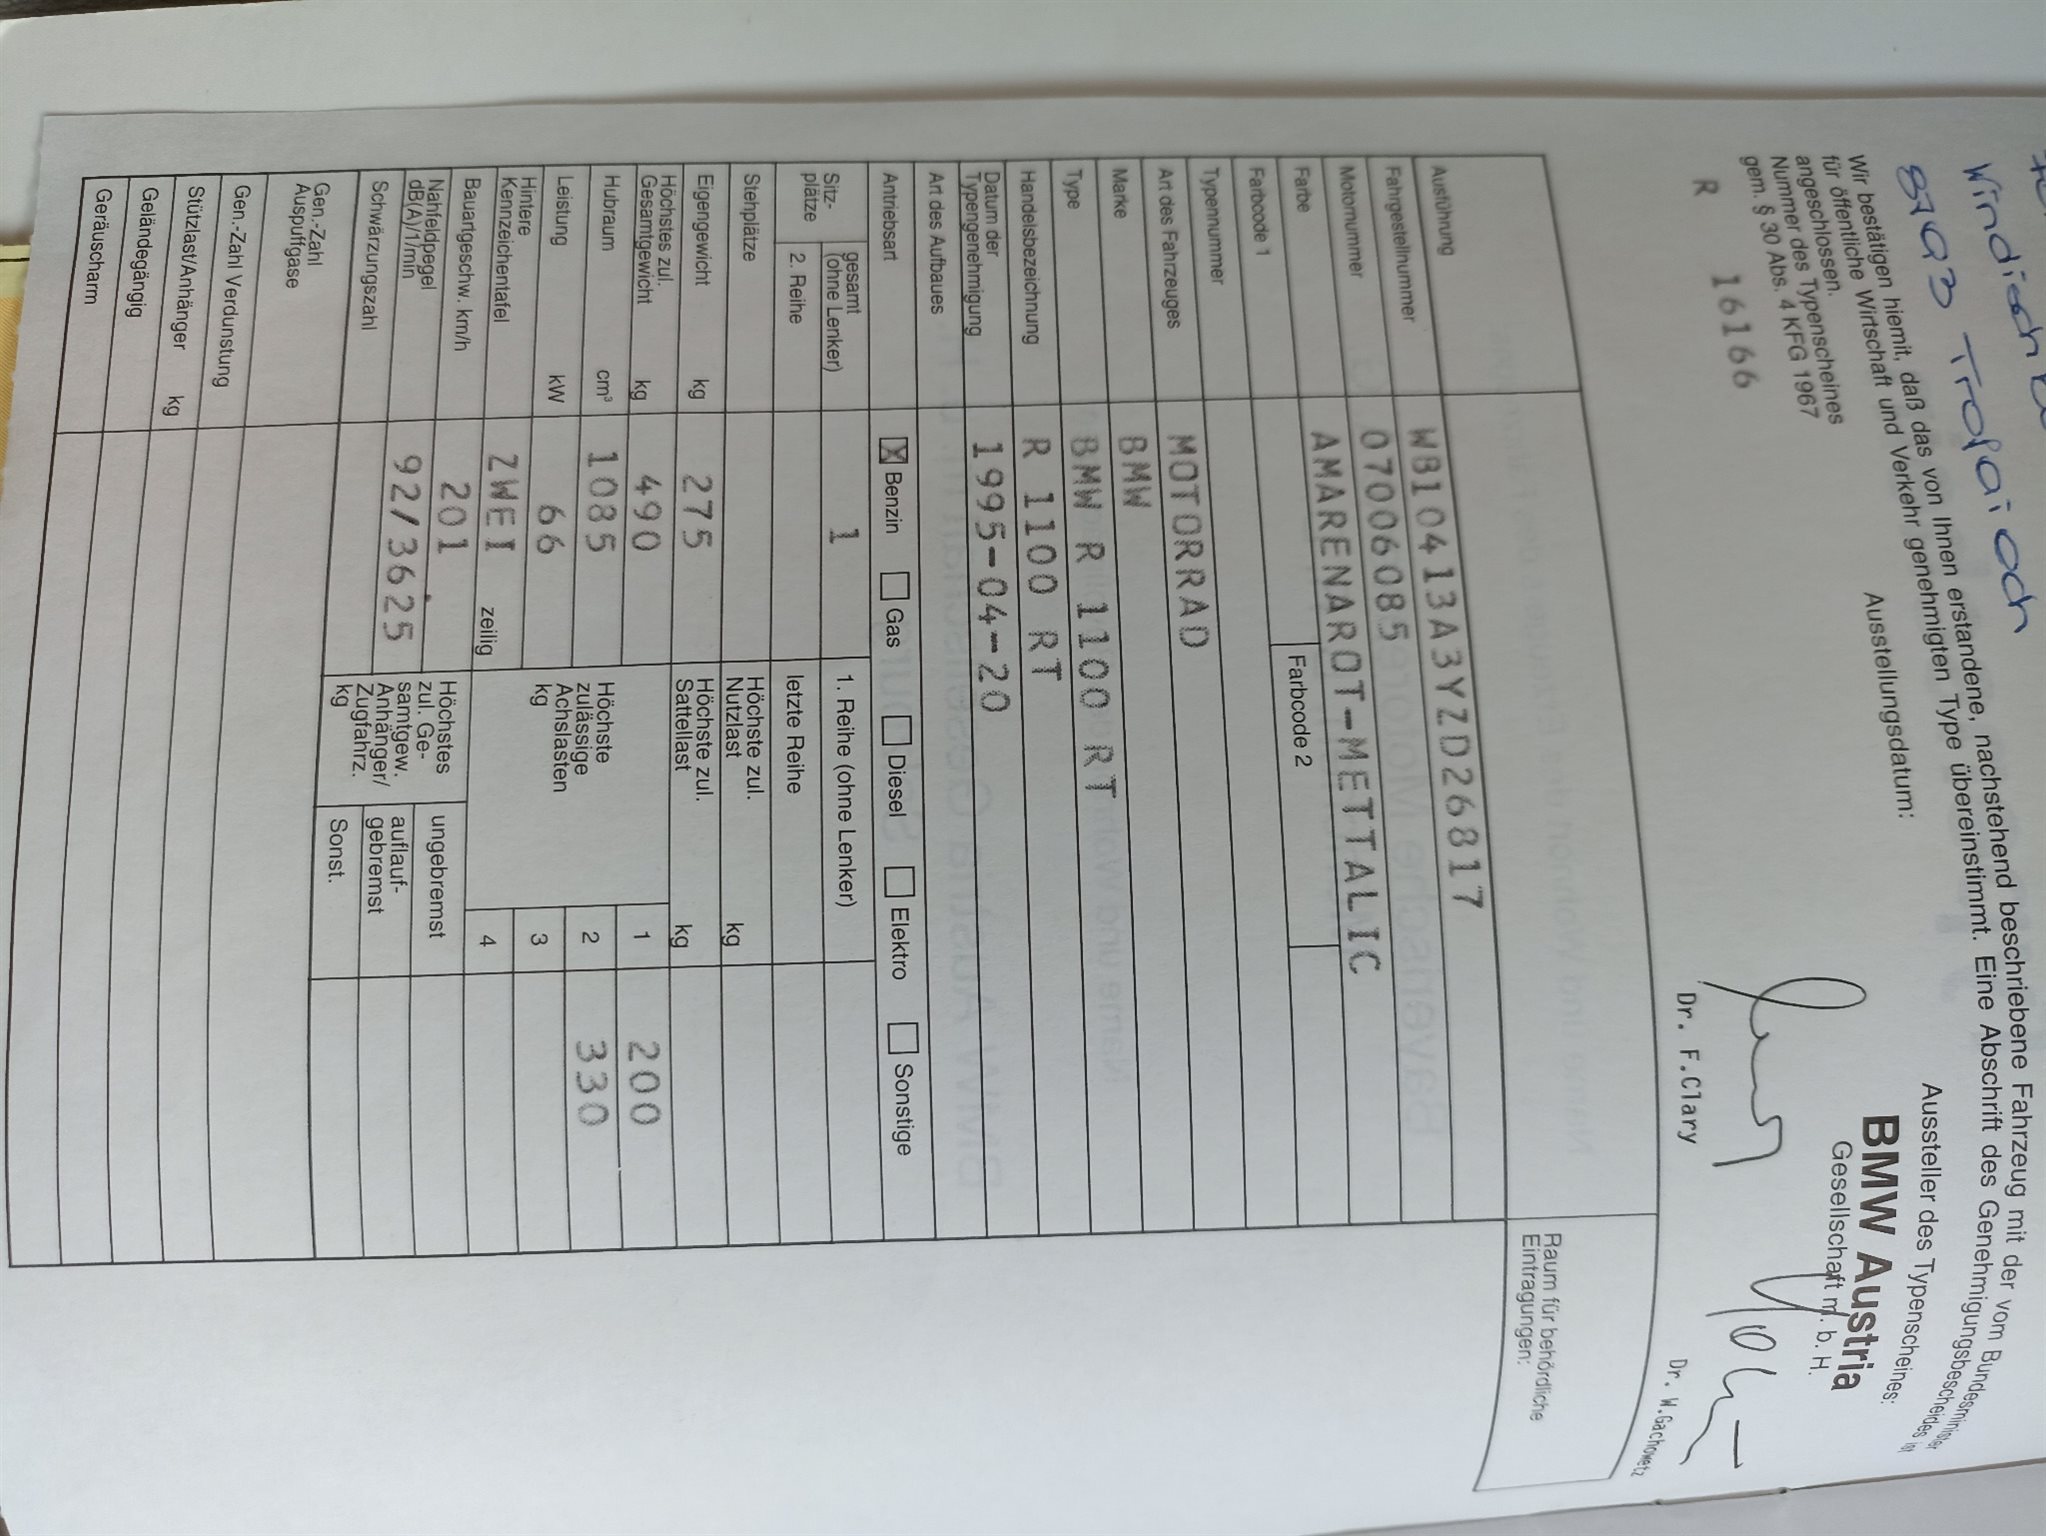 Windisch
8793 Trofaiach
Wir bestätigen hiemit, daß das von Ihnen erstandene, nachstehend beschriebene Fahrzeug mit der vom Bundesminister
für öffentliche Wirtschaft und Verkehr genehmigten Type übereinstimmt. Eine Abschrift des Genehmigungsbescheides ist
angeschlossen.
Nummer des Typenscheines
gem. § 30 Abs. 4 KFG 1967
Ausstellungsdatum:
Aussteller des Typenscheines:
BMW Austria
Gesellschaft m. b. H.
R 16166
Dr. F.Clary
Dr. W.Gachowetz
Raum für behördliche
Eintragungen:
Ausführung
Fahrgestellnummer WB10413A3YZD26817
Motornummer 07006085
Farbe AMARENAROT-METTALIC
Farbcode 1 Farbcode 2
Typennummer
Art des Fahrzeuges MOTORRAD
Marke BMW
Type BMW R 1100 RT
Handelsbezeichnung R 1100 RT
Datum der
Typengenehmigung 1995-04-20
Art des Aufbaues
Antriebsart X Benzin Gas Diesel Elektro Sonstige
Sitz-
plätze
gesamt
(ohne Lenker) 1 1. Reihe (ohne Lenker)
2. Reihe letzte Reihe
Stehplätze Höchste zul.
Nutzlast kg
Eigengewicht kg 275 Höchste zul.
Sattellast kg
Höchstes zul.
Gesamtgewicht kg 490
Höchste
zulässige
Achslasten
kg
1 200
Hubraum cm³ 1085 2 330
Leistung kW 66 3
Hintere
Kennzeichentafel ZWEI zeilig 4
Bauartgeschw. km/h 201
Höchstes
zul. Ge-
samtgew.
Anhänger/
Zugfahrz.
kg
ungebremst
Nahfeldpegel
dB(A)/1/min 92/3625
auflauf-
gebremst
Schwärzungszahl Sonst.
Gen.-Zahl
Auspuffgase
Gen.-Zahl Verdunstung
Stützlast/Anhänger kg
Geländegängig
Geräuscharm